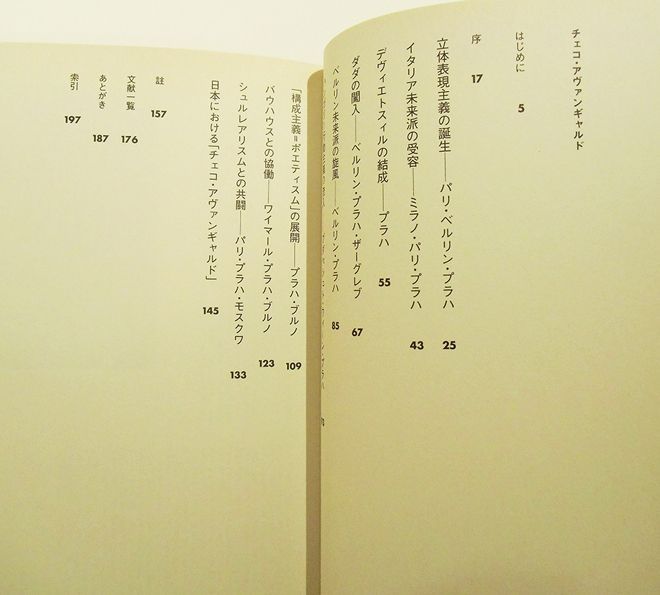 チェコ・アヴァンギャルド
はじめに 5
序 17
立体表現主義の誕生――パリ・ベルリン・プラハ 25
イタリア未来派の受容――ミラノ・パリ・プラハ 43
デヴィエトスィルの結成――プラハ 55
ダダの闖入――ベルリン・プラハ・ザーグレブ 67
ベルリン未来派の旋風――ベルリン・プラハ 85
「構成主義=ポエティスム」の展開――プラハ・ブルノ 109
バウハウスとの協働――ワイマール・プラハ・ブルノ 123
シュルレアリスムとの共闘――パリ・プラハ・モスクワ 133
日本における「チェコ・アヴァンギャルド」 145
註 157
文献一覧 176
あとがき 187
索引 197